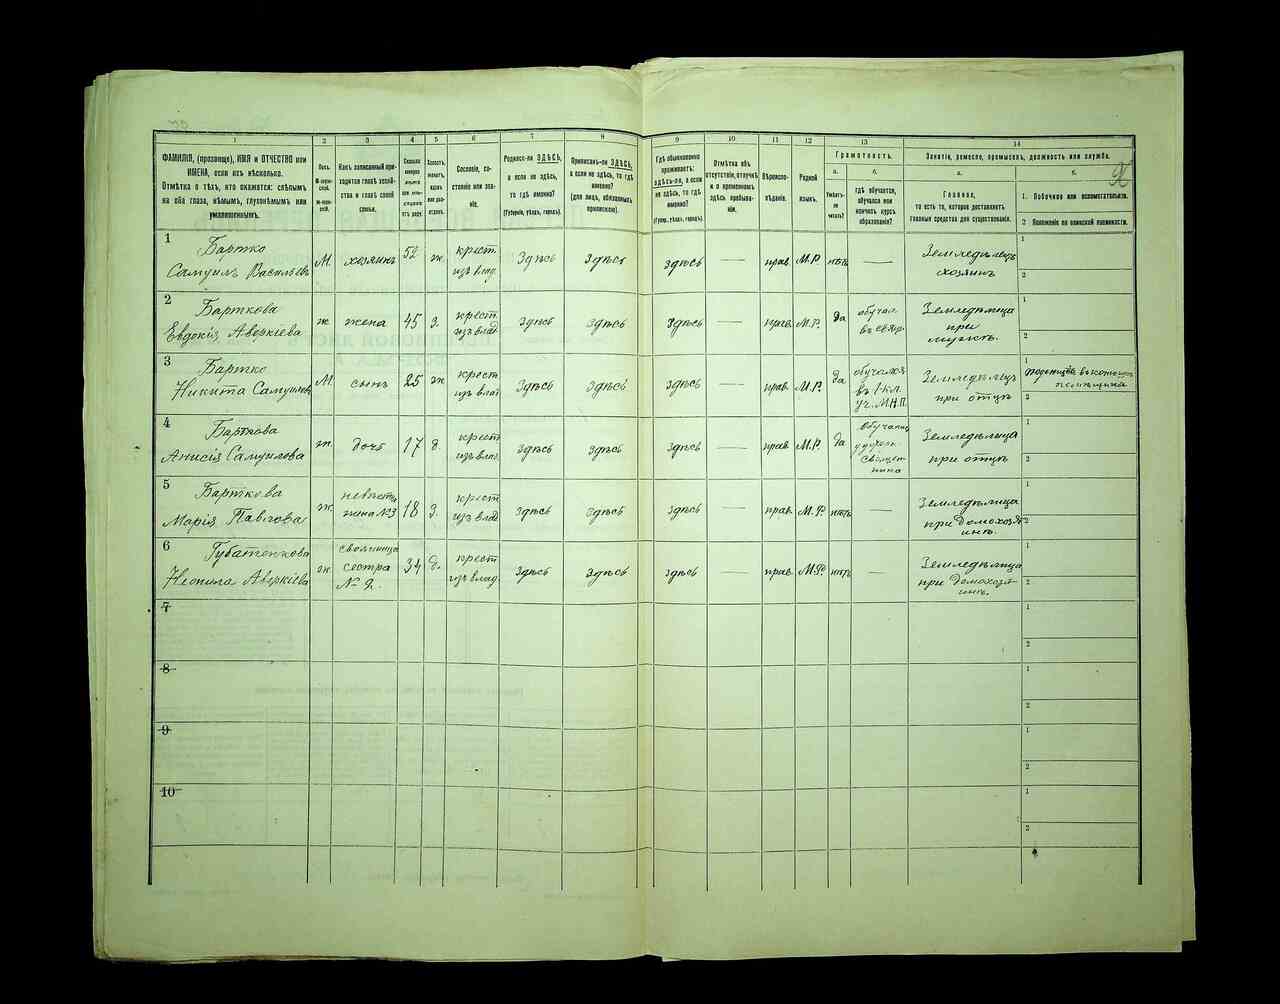 1
2
3
4
5
6
7
8
9
10
11
12
13
14
ФАМИЛІЯ, (прозвище), ИМЯ и ОТЧЕСТВО или
ИМЕНА, если ихъ нѣсколько.
Отмѣтка о тѣхъ, кто окажется: слѣпымъ
на оба глаза, нѣмымъ, глухонѣмымъ или
умалишеннымъ.
Полъ.
Какъ записанный при-
ходится главѣ хозяй-
ства и главѣ своей
семьи.
Сословіе, со-
стояніе или зва-
ніе.
Родился-ли ЗДѢСЬ,
а если не здѣсь,
то гдѣ именно?
(Губернія, уѣздъ, городъ).
Приписанъ-ли ЗДѢСЬ,
а если не здѣсь, то гдѣ
именно?
(для лицъ, обязанныхъ
припиской).
Гдѣ обыкновенно
проживаетъ:
здѣсь-ли, а если
не здѣсь, то гдѣ
именно?
(Губер., уѣздъ, городъ).
Отмѣтка объ
отсутствіи, отлучкѣ
и о временномъ
здѣсь пребыва-
ніи.
Вѣроиспо-
вѣданіе.
Родной
языкъ.
Грамотность.
а.
б.
Умѣетъ-
ли
читать?
гдѣ обучается,
обучался или
кончилъ курсъ
образованія?
Занятіе, ремесло, промыселъ, должность или служба.
а.
б.
Главное,
то есть то, которое доставляетъ
главныя средства для существованія.
1. Побочное или вспомогательное.
2 Положеніе по воинской повинности.
1
Бартко
Самуилъ Васильевъ
М.
хозяинъ
52
ж.
крест.
изъ влад.
Здѣсь
Здѣсь
здѣсь
—
прав.
М.Р.
нѣтъ
—
Земледѣлецъ
хозяинъ
1
2
2
Барткова
Евдокія Аверкіева
ж
жена
45
з.
крест.
изъ влад
Здѣсь
Здѣсь
Здѣсь
—
прав.
М.Р.
да
Земледѣлица
при
мужѣ.
1
2
3
Бартко
Никита Самуиловъ
М.
сынъ
25
ж
крест
изъ влад
Здѣсь
Здѣсь
здѣсь
—
прав.
М.Р.
да
обучался
въ 1 кл.
уч. М.Н.П.
Земледѣлецъ
при отцѣ
1
2
4
Барткова
Анисія Самуилова
ж.
дочь
17
д.
крест
изъ влад.
Здѣсь
Здѣсь
здѣсь
—
прав
М.Р.
да
Земледѣлица
при отцѣ
1
2
5
Барткова
Марія Павлова
ж.
невѣстка
жена №3
18
з.
крест
изъ влад
Здѣсь
Здѣсь
здѣсь
—
прав.
М.Р.
нѣтъ
—
Земледѣлица
при домохозя-
инѣ.
1
2
6
Губатенкова
Неонила Аверкіева
ж.
свояченица
сестра
№ 2.
34
д.
крест
изъ влад.
Здѣсь
Здѣсь
здѣсь
—
прав.
М.Р.
нѣтъ
—
Земледѣлица
при домохозя-
инѣ.
1
2
7
1
2
8
1
2
9
1
2
10
1
2